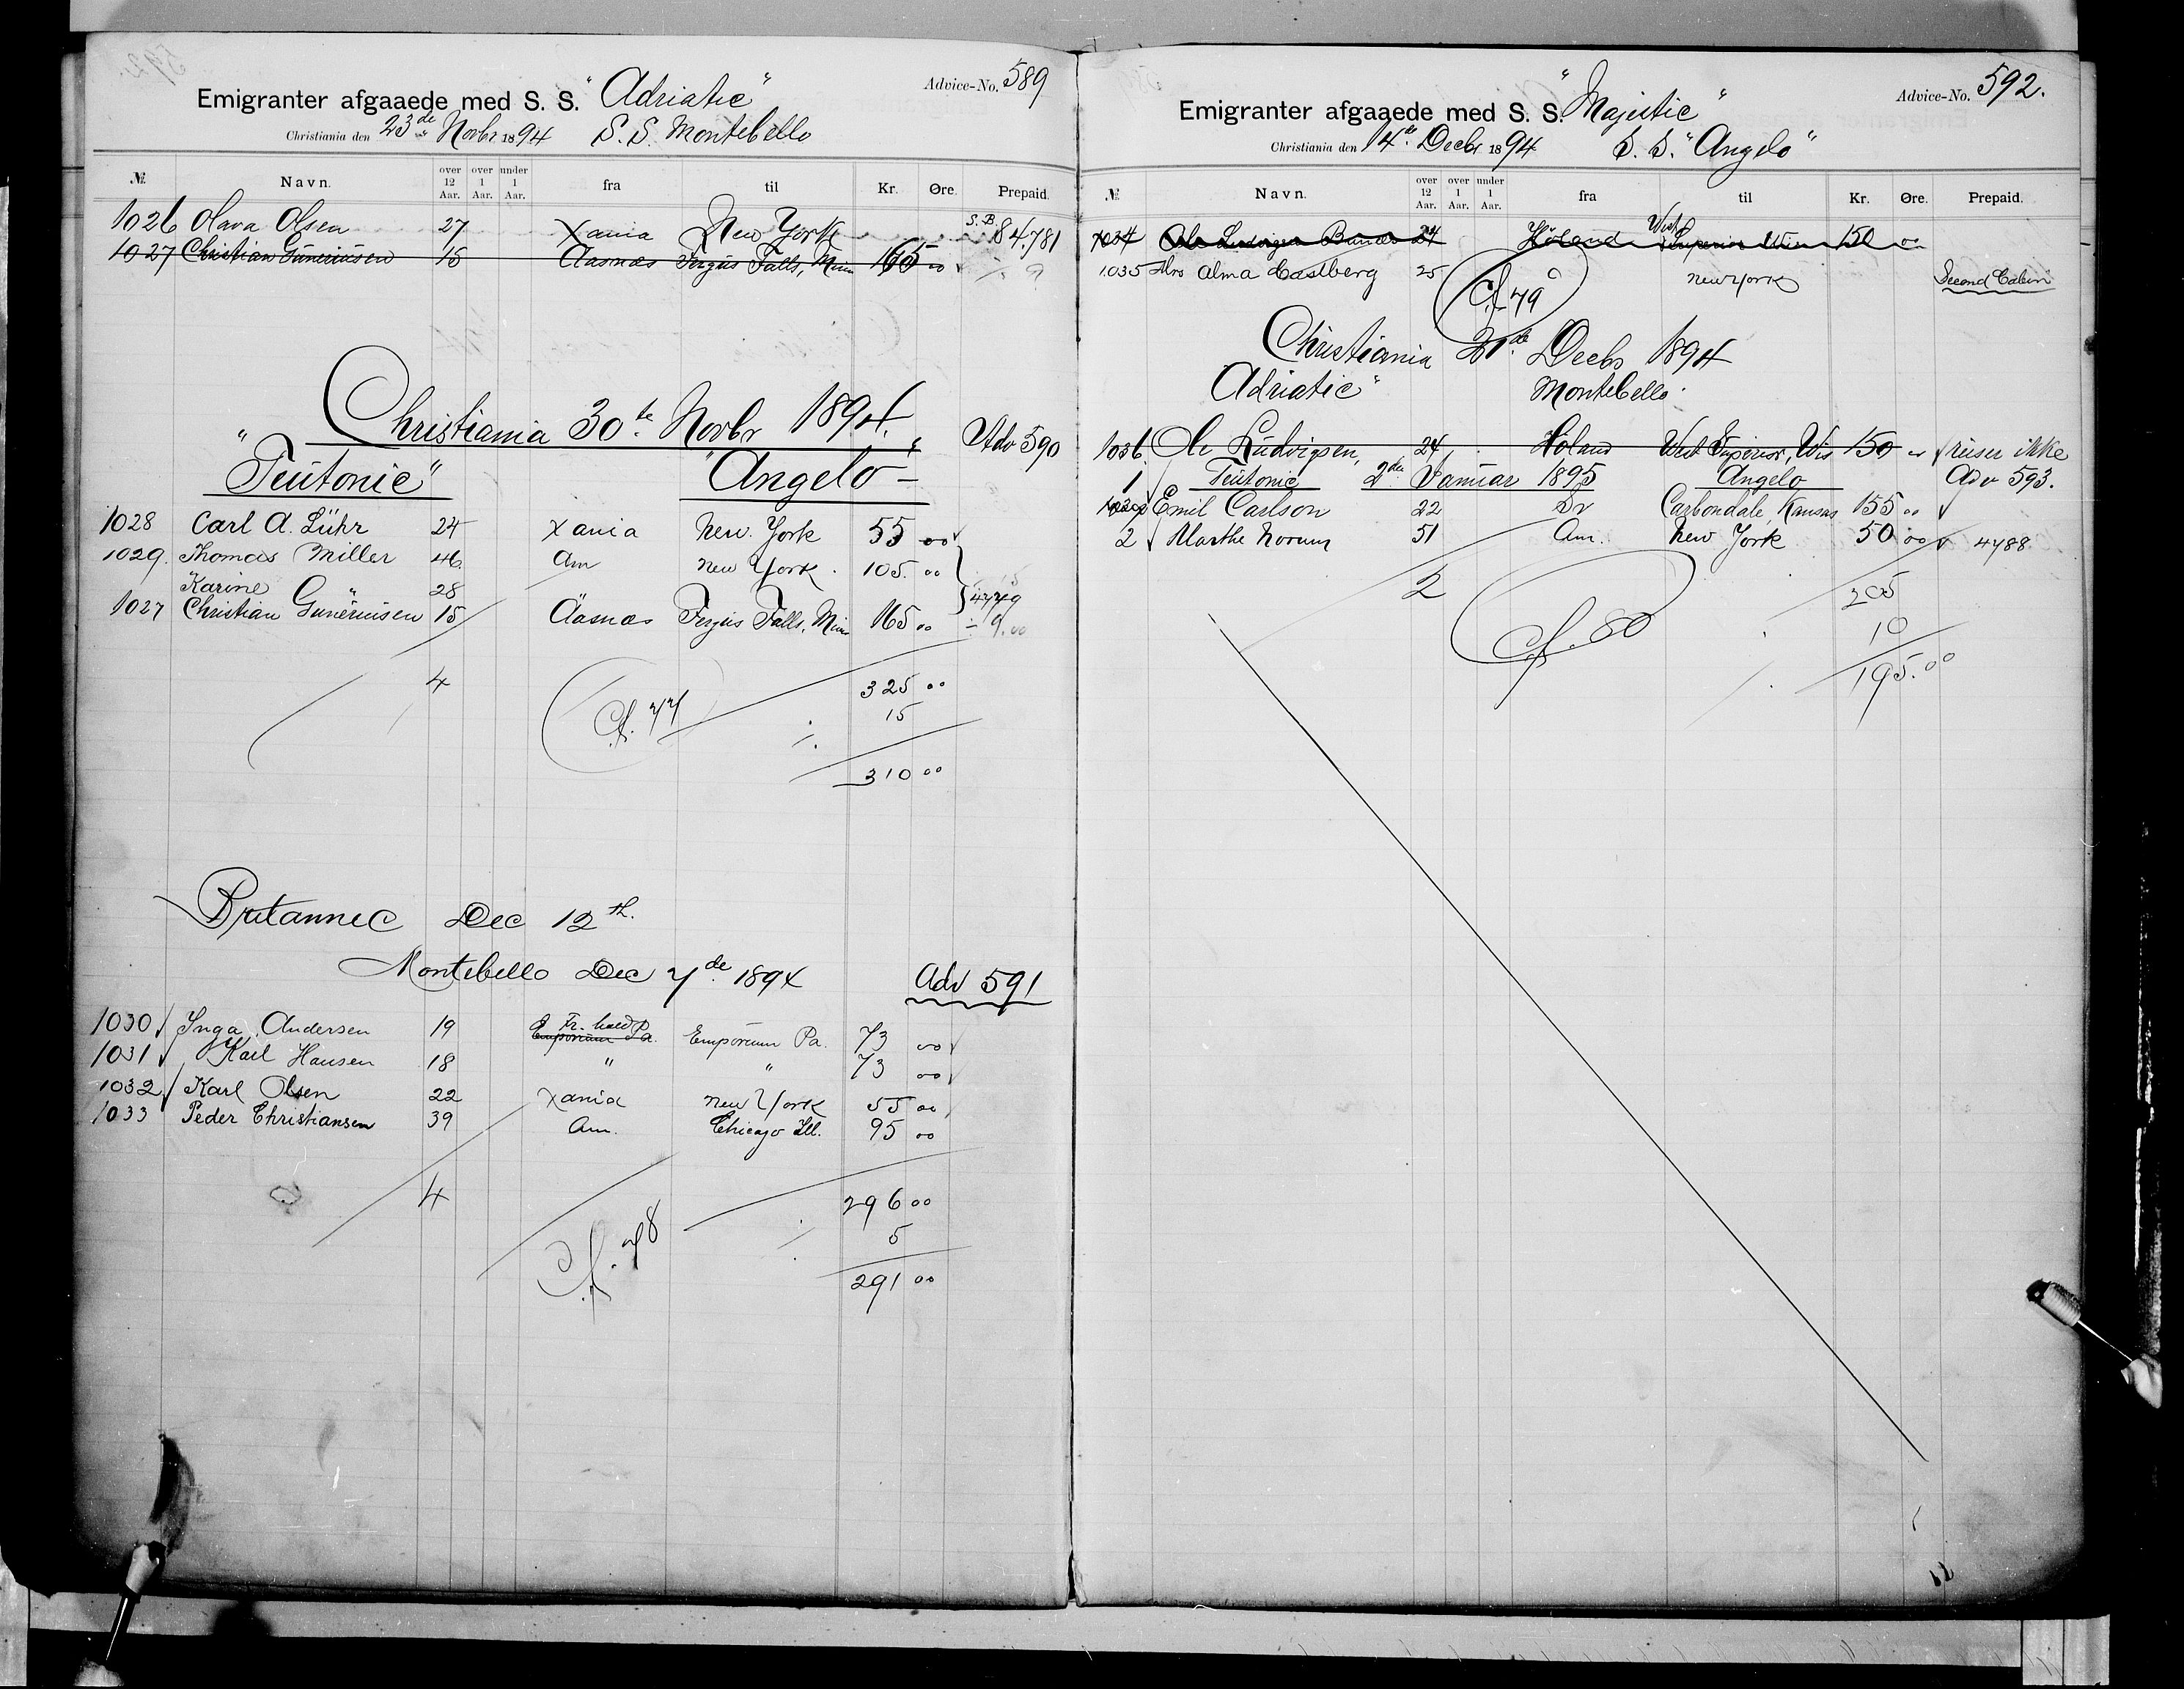 Advice-No. 589
Emigranter afgaaede med S. S. "Adriatic"
Christiania den 23de Novbr 1894 S. S. Montebello
№ Navn. over 12 Aar. over 1 Aar. under 1 Aar. fra til Kr. Øre. Prepaid.
1026 Olava Olsen 27 Xania New York S.B. 84.781
1027 Christian Gunerius en 15 Aasnæs Fergus Falls, Minn 165 00
Christiania 30te Novbr 1894. Adv 590
"Teutonic" "Angelo"
1028 Carl A. Lühr 24 Xania New York 55 00
1029. Thomas Miller 46 Am New York. 105. 00
Karine " 28 4749
1027 Christian Guneriusen 15 Aasnæs Fergus Falls, Minn 165 00 ÷ 9.00
4 325 00
Cf. 77 ÷ 15
310 00
Britannic Dec 12th.
Montebello Dec 7de 1894 Adv 591
1030 Inga Andersen 19 Emporium Pa. Emporium Pa. 73 00
1031 Karl Hansen 18 " " 73 00
1032 Karl Olsen 22 Xania New York 55 00
1033 Peder Christiansen 39 Am. Chicago Ill. 95 00
4 296 00
Cf. 78 ÷ 5
291 00
Advice-No. 592.
Emigranter afgaaede med S. S. "Majestic"
Christiania den 14de Decbr 1894 S. S. "Angelo"
№ Navn. over 12 Aar. over 1 Aar. under 1 Aar. fra til Kr. Øre. Prepaid.
1034 Ole Ludvigsen 24 Höland West Superior Wisc 150 00
1035 Mrs Alma Eastberg 25 New York Second Cabin
Cf 79
Christiania 21de Decbr 1894
Adriatic" Montebello
1036 Ole Ludvigsen, 24 Holand West Superior, Wis 150 00 reiser ikke
Teutonic 2den Januar 1895 Angelo Adv 593.
1 Emil Carlson 22 Dr Carbondale, Kansas 155 00
2 Marthe Norum 51 Am. New York 50 00 4788
2 205
Cf. 80 ÷ 10
195.00